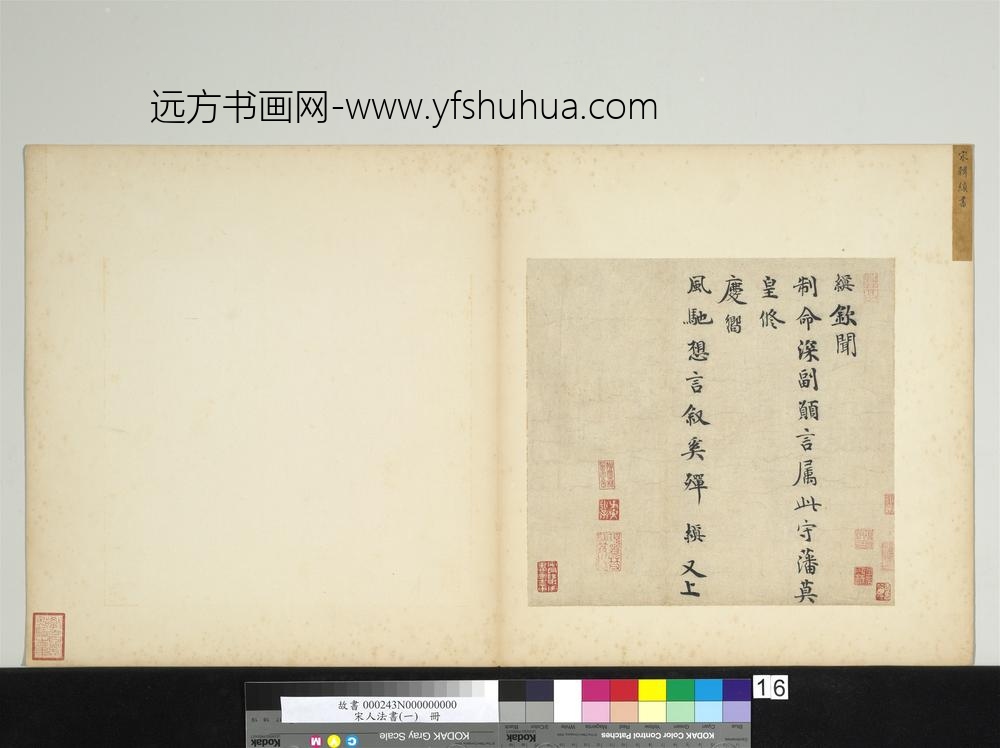 远方书画网-www.yfshuhua.com
宋韓縝書
縝欽聞
制命深副願言属此守藩莫
皇修
慶嚮
風馳想言叙奚殫 縝 又上
16
故書 000243N000000000
宋人法書(一) 冊
Kodak
KODAK Gray Scale
C
Y
M
Kodak
KODAK Color Control Patches
Blue
Cyan
Green
Yellow
Red
Magenta
White
3/Color
Black